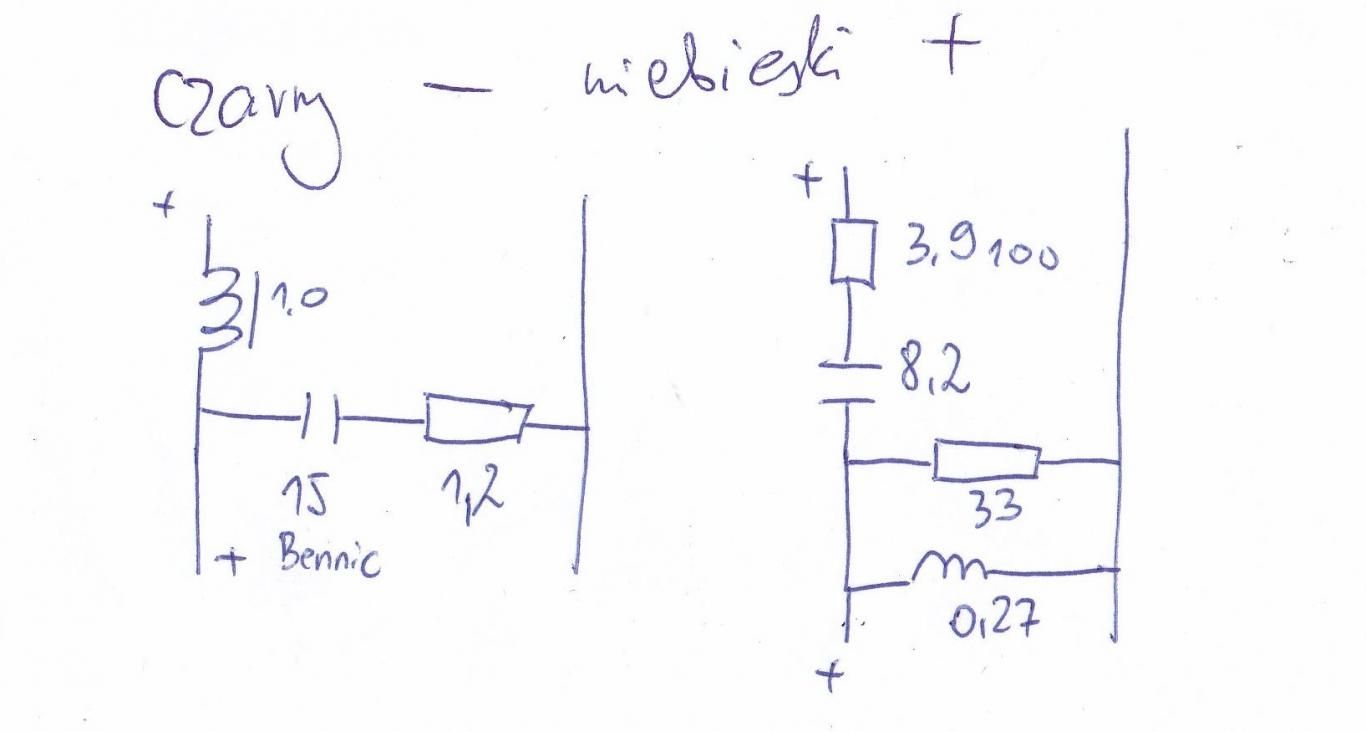 czarny - niebieski +
+
+
1.0
3,9 100
8,2
15
1,2
33
+ Bennic
0,27
+